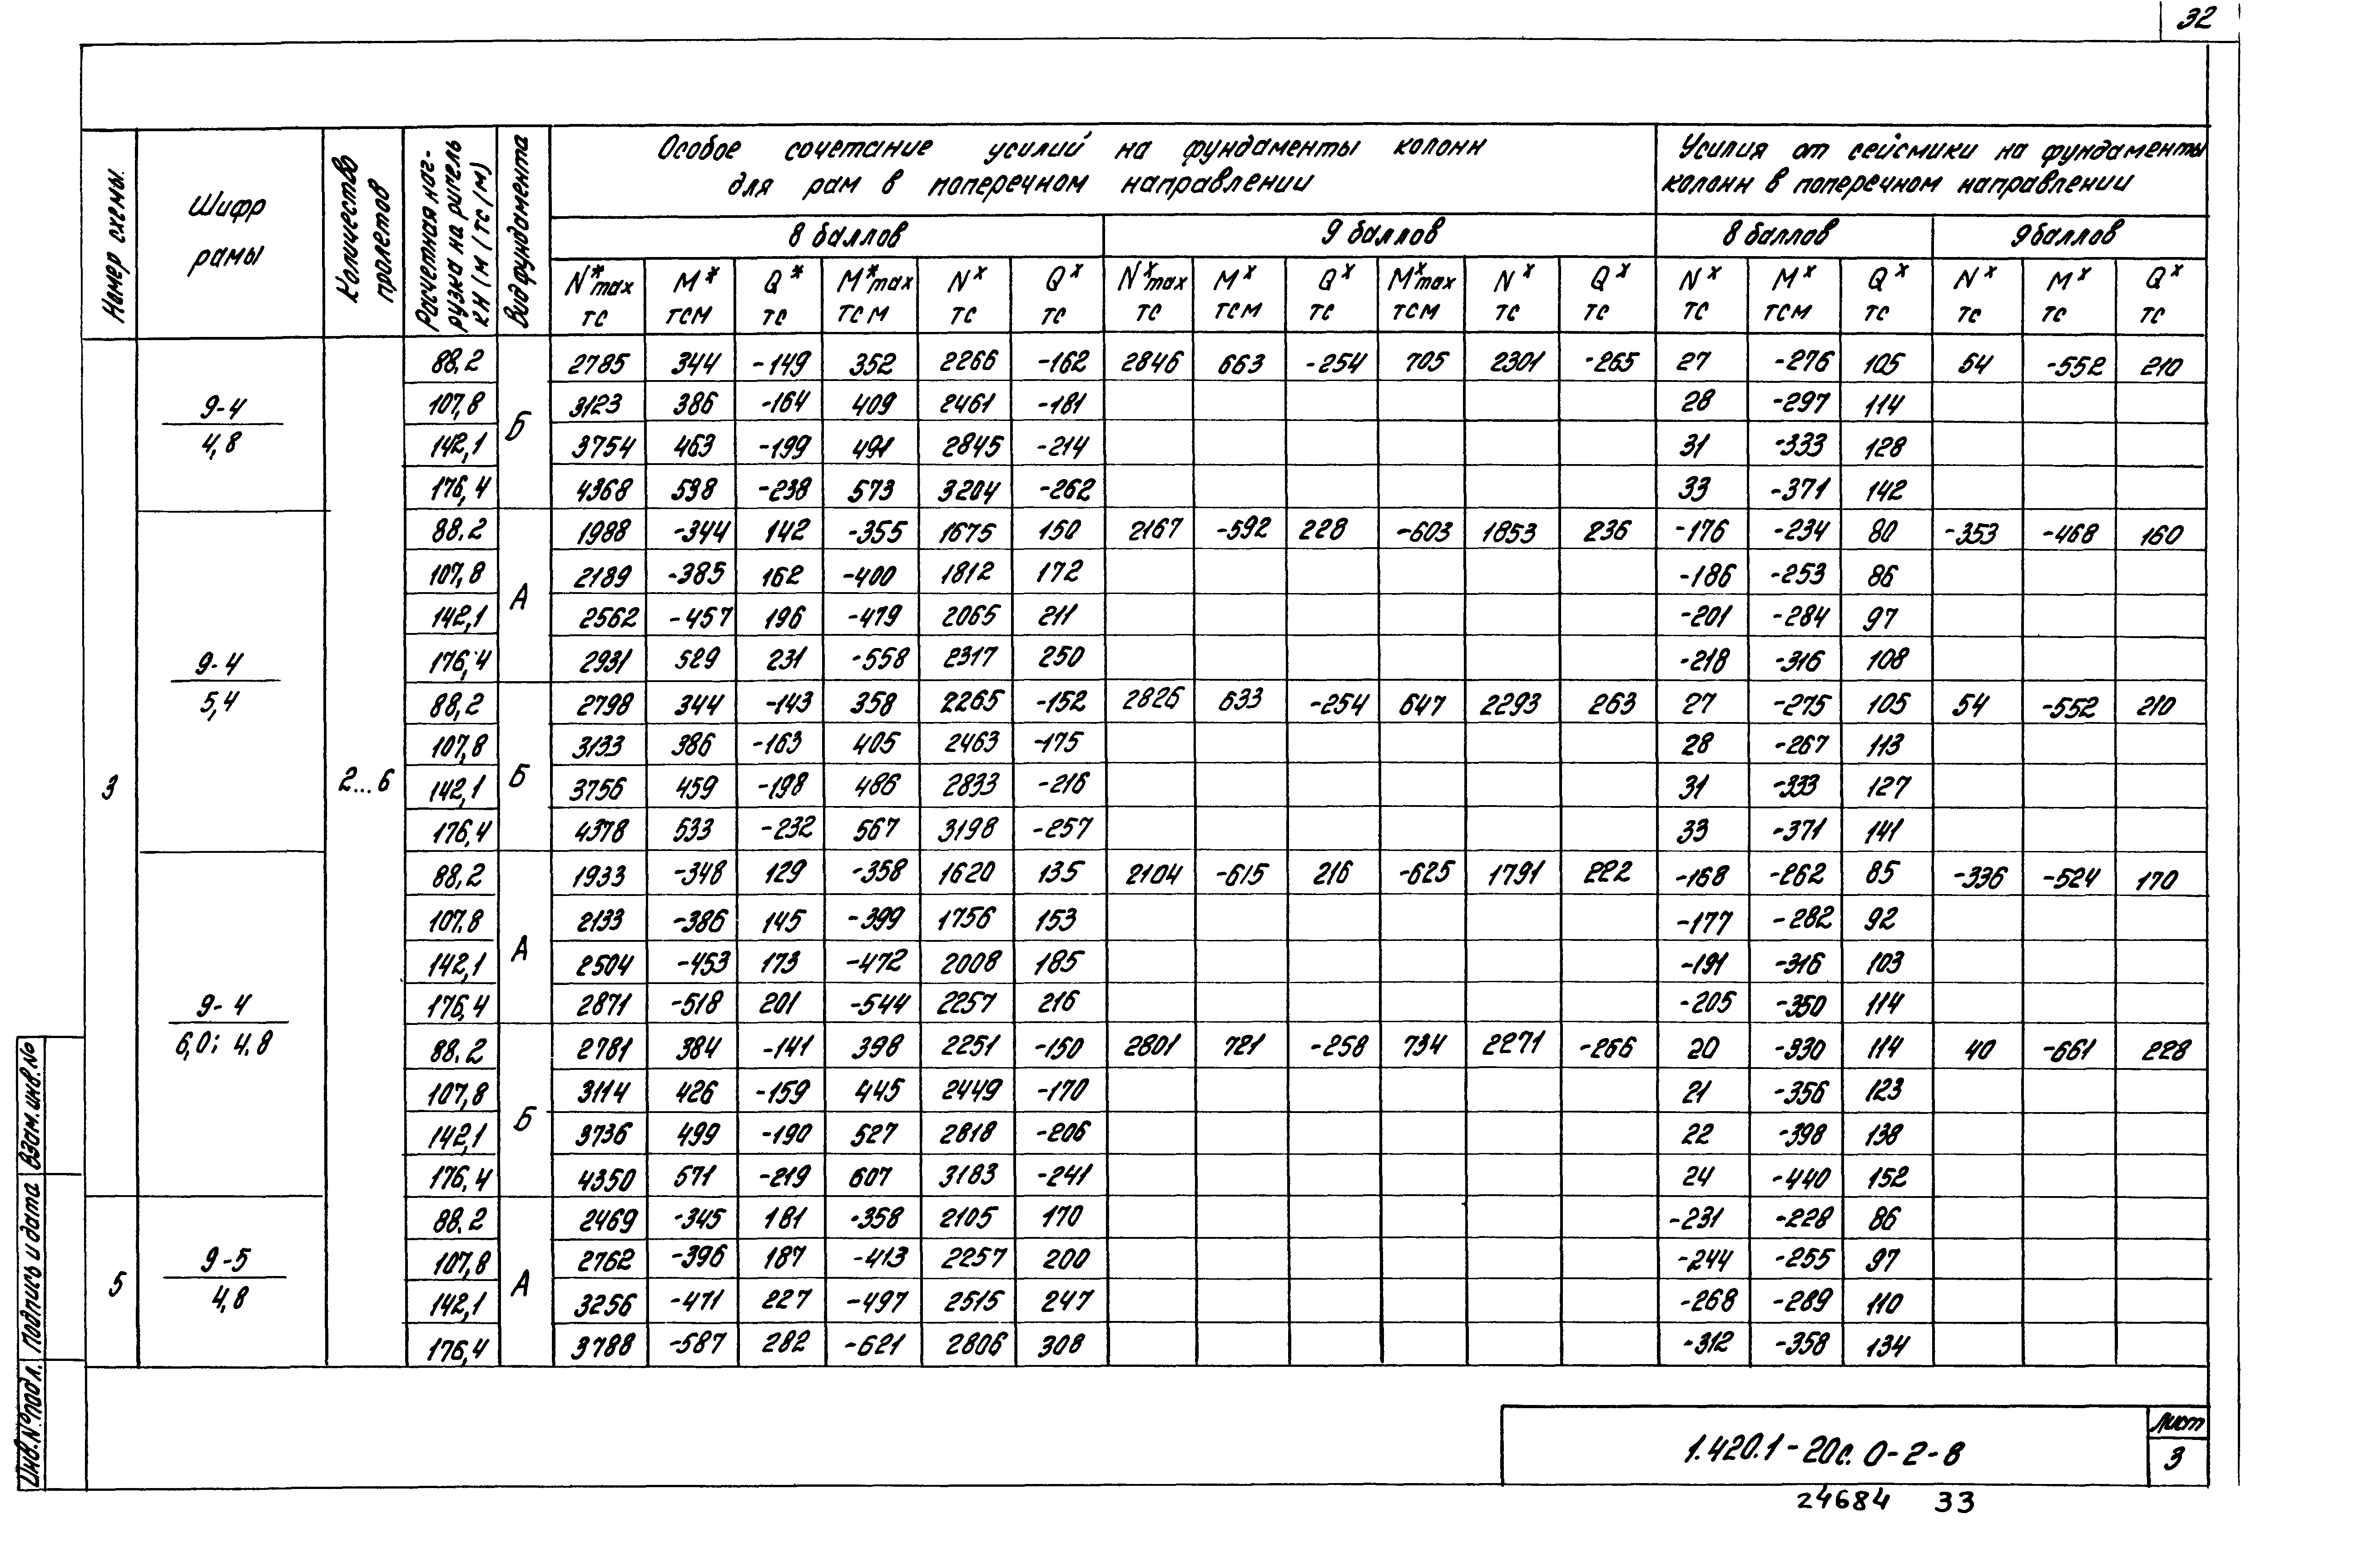 32
Номер схемы.
Шифр рамы
Количество пролетов
Расчетная наг-
рузка на ригель
кН/м (тс/м)
Вид фундамента
Особое сочетание усилий на фундаменты колонн
для рам в поперечном направлении
Усилия от сейсмики на фундаменты
колонн в поперечном направлении
8 баллов 9 баллов 8 баллов 9 баллов
N*max M* Q* M*max Nx Qx Nxmax Mx Qx Mxmax Nx Qx Nx Mx Qx Nx Mx Qx
тс тсм тс тсм тс тс тс тсм тс тсм тс тс тс тсм тс тс тс тс
3 9-4 / 4,8 2...6 Б
88,2 2785 344 -149 352 2266 -162 2846 663 -254 705 2301 -265 27 -276 105 54 -552 210
107,8 3123 386 -164 409 2461 -181 28 -297 114
142,1 3754 463 -199 491 2845 -214 31 -333 128
176,4 4368 538 -238 573 3204 -262 33 -371 142
9-4 / 5,4 А
88.2 1988 -344 142 -355 1675 150 2167 -592 228 -603 1853 236 -176 -234 80 -353 -468 160
107,8 2189 -385 162 -400 1812 172 -186 -253 86
142,1 2562 -457 196 -479 2065 211 -201 -284 97
176,4 2931 529 231 -558 2317 250 -218 -316 108
Б
88,2 2798 344 -143 358 2265 -152 2826 633 -254 647 2293 263 27 -275 105 54 -552 210
107,8 3133 386 -163 405 2463 -175 28 -267 113
142,1 3756 459 -198 486 2833 -216 31 -333 127
176,4 4378 533 -232 567 3198 -257 33 -371 141
9-4 / 6,0; 4.8 А
88,2 1933 -348 129 -358 1620 135 2104 -615 216 -625 1791 222 -168 -262 85 -336 -524 170
107.8 2133 -386 145 -399 1756 153 -177 -282 92
142,1 2504 -453 173 -472 2008 185 -191 -316 103
176,4 2871 -518 201 -544 2257 216 -205 -350 114
Б
88.2 2781 384 -141 398 2251 -150 2801 721 -258 734 2271 -266 20 -330 114 40 -661 228
107,8 3114 426 -159 445 2449 -170 21 -356 123
142,1 3736 499 -190 527 2818 -206 22 -398 138
176,4 4350 571 -219 607 3183 -241 24 -440 152
5 9-5 / 4,8 А
88.2 2469 -345 181 -358 2105 170 -231 -228 86
107,8 2762 -396 187 -413 2257 200 -244 -255 97
142,1 3256 -471 227 -497 2515 247 -268 -289 110
176,4 3788 -587 282 -621 2806 308 -312 -358 134
Инв.№ подл. Подпись и дата Взам.инв.№
1.420.1-20с. 0-2-8
Лист
3
24684 33